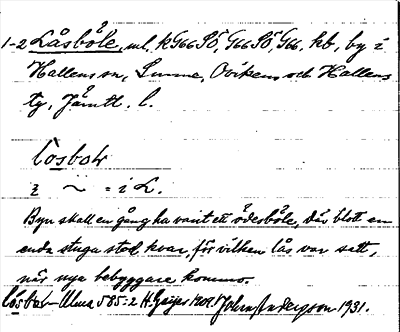 1-2 Låsböle, ml. k G66 SÖ, G66 SÖ, G66, kb, by i
Hallens sn, Sunne, Ovikens och Hallens
tg, Jämtl. l.
lösbolr
i ~ = i L.
Byn skall en gång ha varit ett ödesböle, där blott en
enda stuga stod kvar, för vilken lås var satt,
när nye bebyggare kommo.
Alma 585:2 H. Geijer 1908. John Anderson 1931.